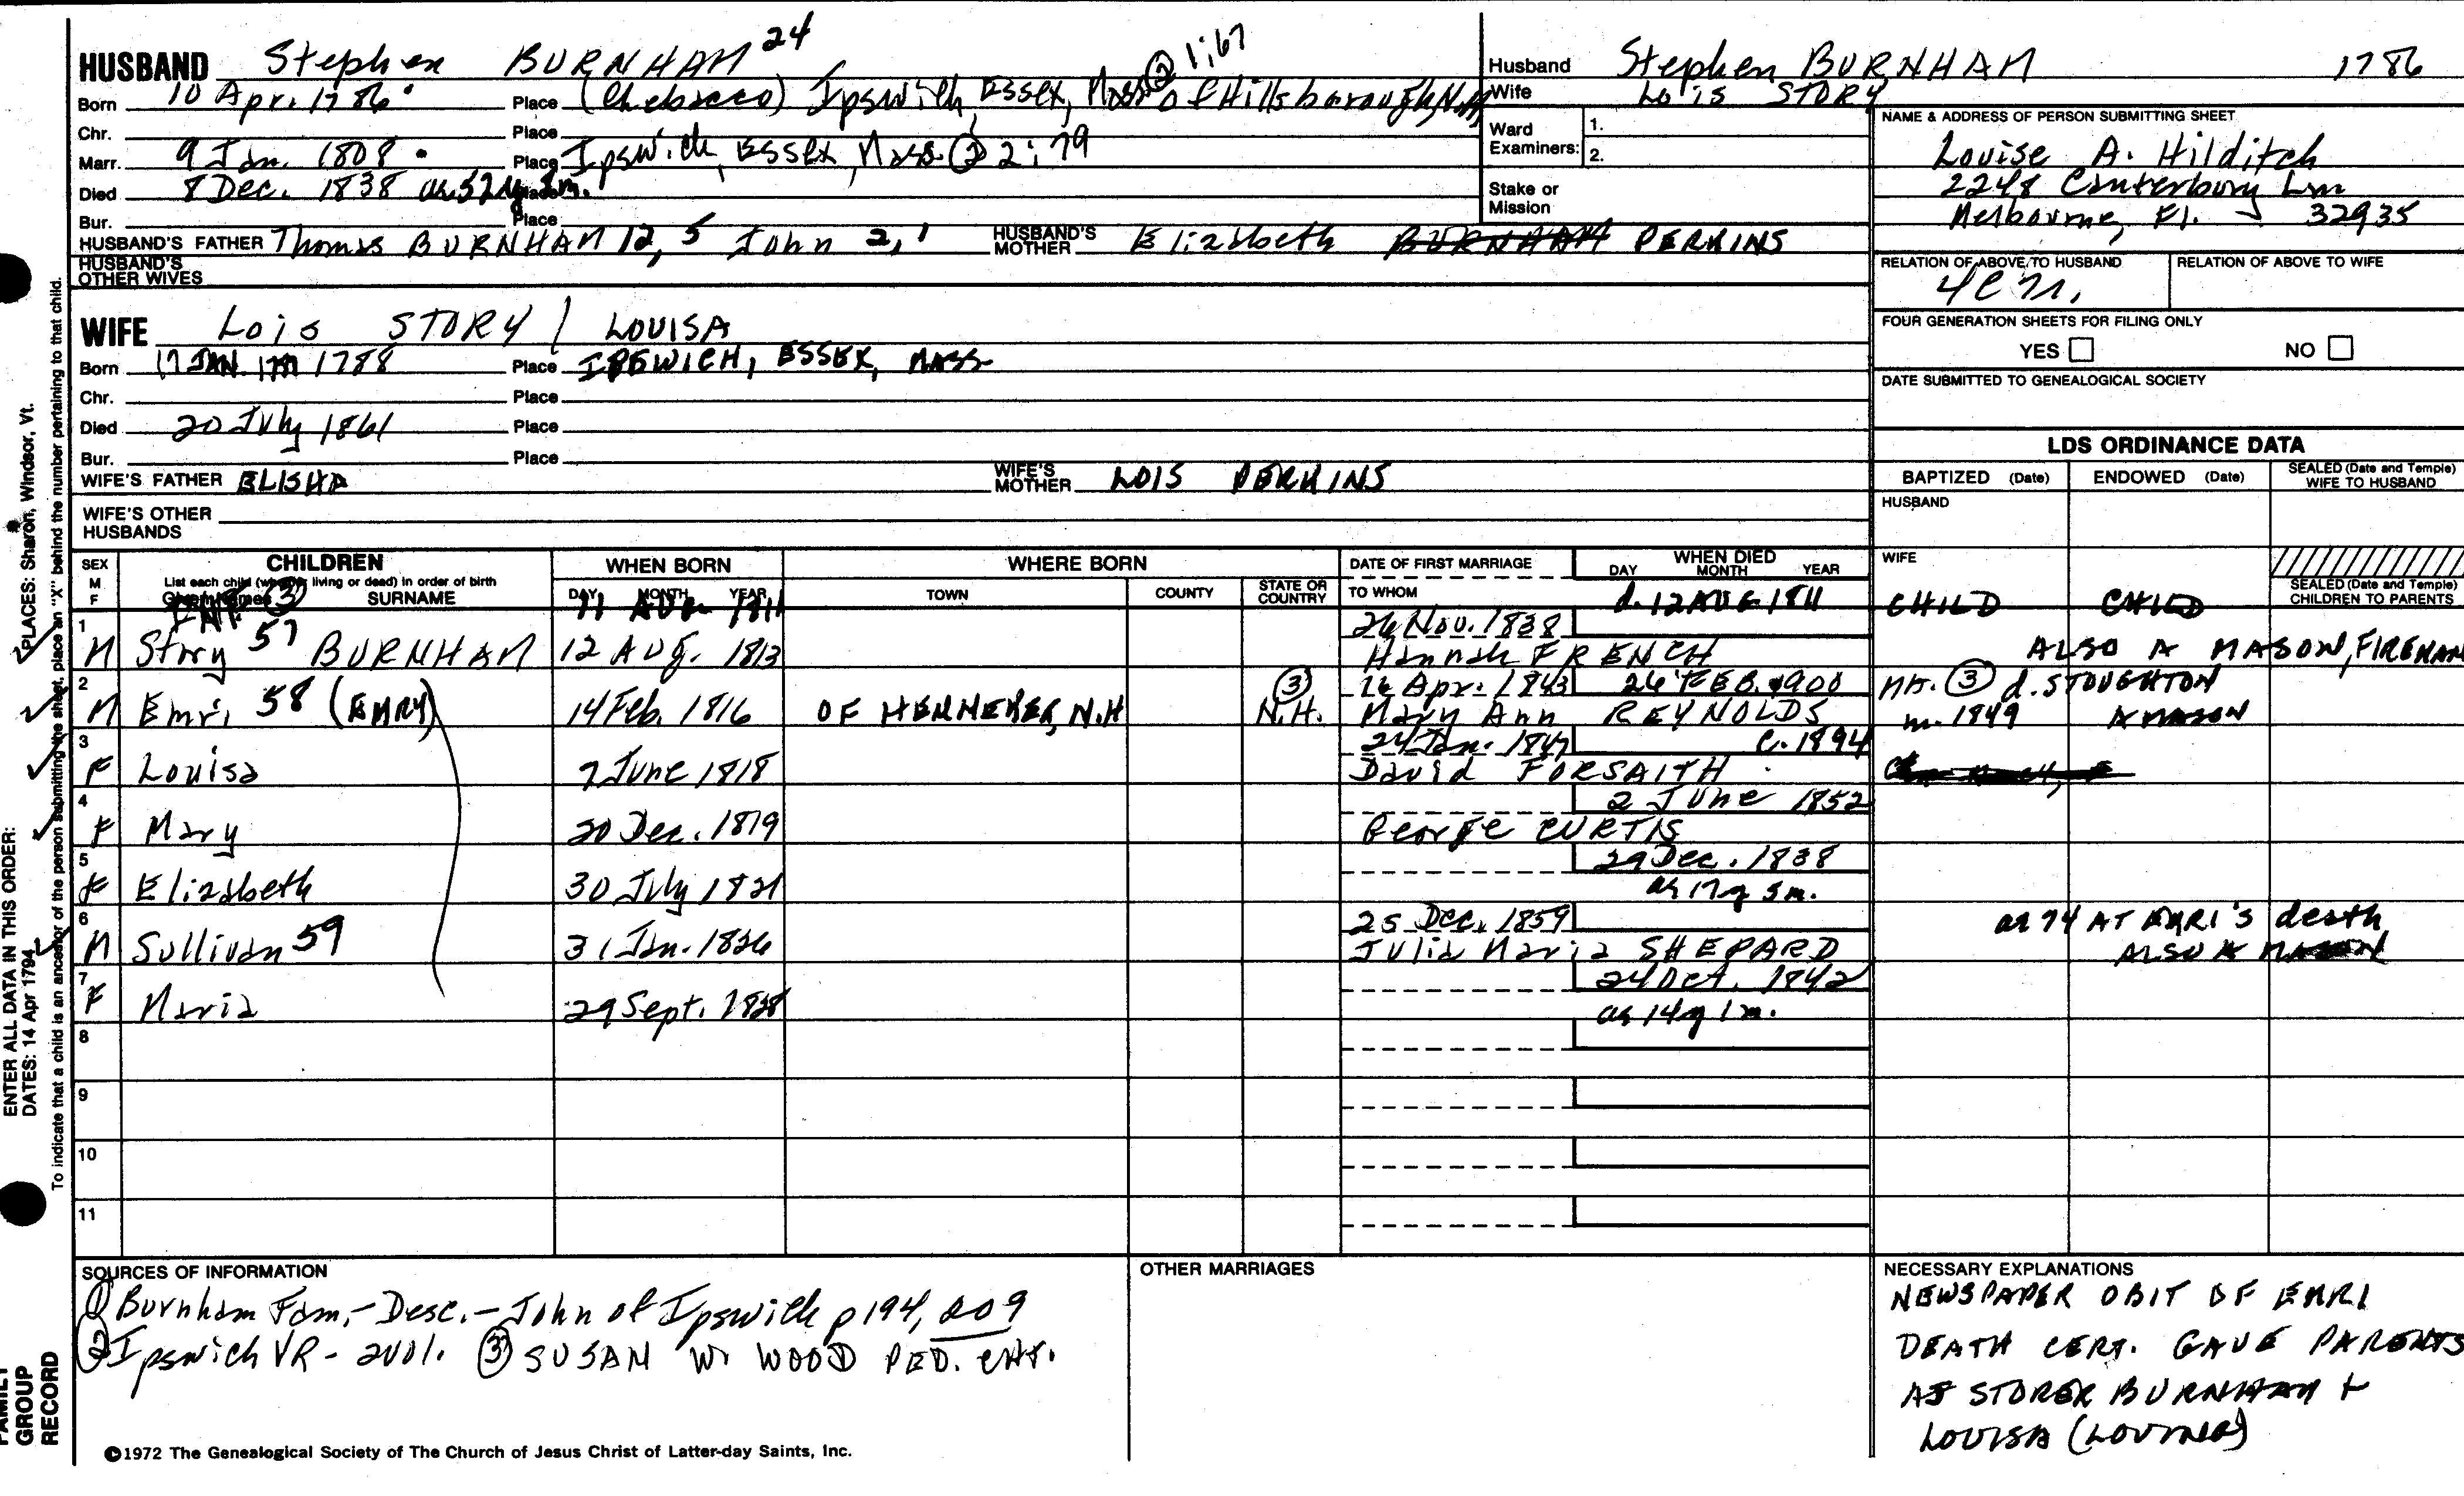 HUSBAND Stephen BURNHAM 24
Born 10 Apr. 1786 Place (Chebacco) Ipswich, Essex, Mass ② 1:67 of Hillsborough, N.H.
Chr. Place
Marr. 9 Jan. 1808 Place Ipswich, Essex, Mass. ② 2:79
Died 8 Dec. 1838 ae 52y 8m. Place
Bur. Place
HUSBAND'S FATHER Thomas BURNHAM 12, 5 John 2, 1 HUSBAND'S MOTHER Elizabeth BURNHAM PERKINS
HUSBAND'S OTHER WIVES
Husband Stephen BURNHAM 1786
Wife Lois STORY
Ward Examiners: 1.
2.
Stake or Mission
NAME & ADDRESS OF PERSON SUBMITTING SHEET
Louise A. Hilditch
2248 Canterbury Ln
Melbourne, Fl. 32935
RELATION OF ABOVE TO HUSBAND RELATION OF ABOVE TO WIFE
FOUR GENERATION SHEETS FOR FILING ONLY
YES NO
DATE SUBMITTED TO GENEALOGICAL SOCIETY
WIFE Lois STORY / LOUISA
Born 17 JAN. 1788 Place IPSWICH, ESSEX, MASS
Chr. Place
Died 20 July 1861 Place
Bur. Place
WIFE'S FATHER ELISHA WIFE'S MOTHER LOIS PERKINS
WIFE'S OTHER HUSBANDS
LDS ORDINANCE DATA
BAPTIZED (Date) ENDOWED (Date) SEALED (Date and Temple) WIFE TO HUSBAND
HUSBAND
WIFE
SEALED (Date and Temple) CHILDREN TO PARENTS
SEX M F CHILDREN WHEN BORN WHERE BORN DATE OF FIRST MARRIAGE WHEN DIED
List each child (whether living or dead) in order of birth
Given Names SURNAME DAY MONTH YEAR TOWN COUNTY STATE OR COUNTRY TO WHOM DAY MONTH YEAR
INF ③ 11 AUG 1811 d. 12 AUG 1811 CHILD CHILD
1 M Story 57 BURNHAM 12 Aug. 1813 26 Nov. 1838 Hannah FRENCH ALSO A MASON, FIREMAN
2 M Emri 58 (EMRY) 14 Feb. 1816 OF HENNEKER, N.H ③ N.H. 16 Apr. 1843 Mary Ann REYNOLDS 26 FEB. 1900 ③ d. STOUGHTON
m. 1849 A MASON
3 F Louisa 7 June 1818 24 Jan. 1847 David FORSAITH c. 1894
4 F Mary 20 Dec. 1819 George CURTIS 2 June 1852
5 F Elizabeth 30 July 1821 29 Dec. 1838 ae 17y 5m.
6 M Sullivan 59 31 Jan. 1826 25 Dec. 1859 Julia Maria SHEPARD ae 74 AT EMRI'S death
ALSO A MASON
7 F Maria 29 Sept. 1828 24 Oct. 1842 ae 14y 1m.
8
9
10
11
SOURCES OF INFORMATION
① Burnham Fam. - Desc. - John of Ipswich p 194, 209
② Ipswich VR - 2vol. ③ SUSAN W. WOOD PED. CHT.
OTHER MARRIAGES
NECESSARY EXPLANATIONS
NEWSPAPER OBIT OF EMRI
DEATH CERT. GAVE PARENTS
AS STORER BURNHAM +
LOUISA
©1972 The Genealogical Society of The Church of Jesus Christ of Latter-day Saints, Inc.
FAMILY GROUP RECORD
ENTER ALL DATA IN THIS ORDER:
DATES: 14 Apr 1794
PLACES: Sharon, Windsor, Vt.
To indicate that a child is an ancestor of the person submitting the sheet, place an "X" behind the number pertaining to that child.